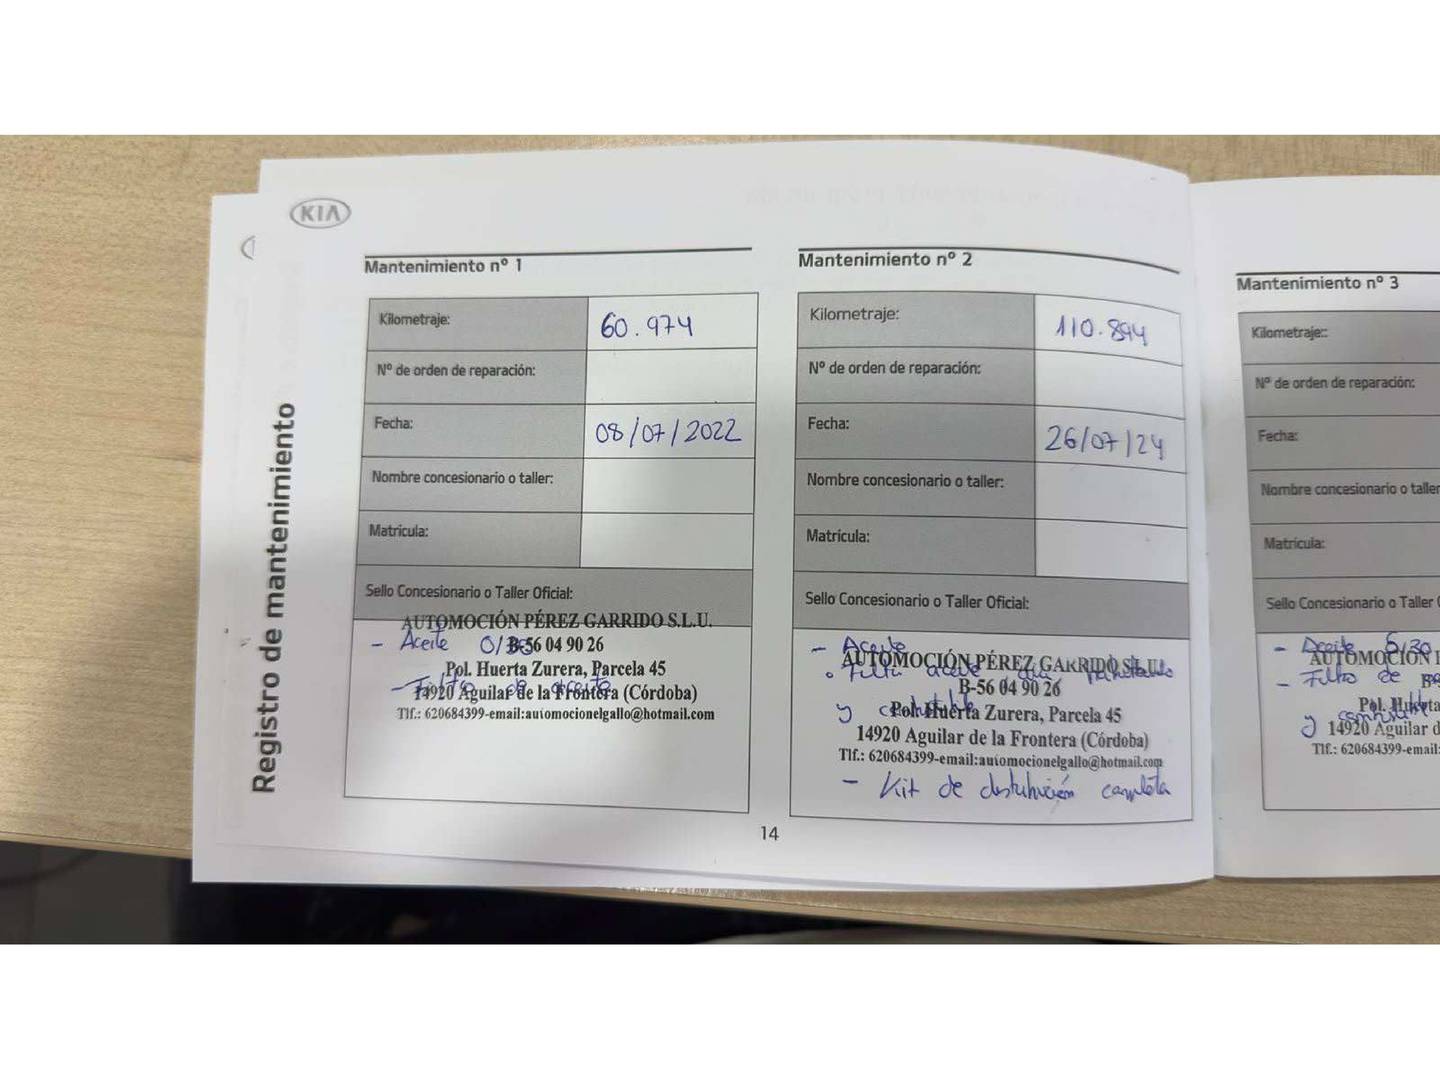 KIA
Registro de mantenimiento
Mantenimiento nº 1
Kilometraje: 60.974
Nº de orden de reparación:
Fecha: 08/07/2022
Nombre concesionario o taller:
Matrícula:
Sello Concesionario o Taller Oficial:
AUTOMOCIÓN PÉREZ GARRIDO S.L.U.
- Aceite 0/30
B-56 04 90 26
Pol. Huerta Zurera, Parcela 45
- Filtro de aceite
14920 Aguilar de la Frontera (Córdoba)
Tlf.: 620684399-email:automocionelgallo@hotmail.com
Mantenimiento nº 2
Kilometraje: 110.894
Nº de orden de reparación:
Fecha: 26/07/24
Nombre concesionario o taller:
Matrícula:
Sello Concesionario o Taller Oficial:
- Aceite
AUTOMOCIÓN PÉREZ GARRIDO S.L.U.
Filtro aceite
B-56 04 90 26
y combustible
Pol. Huerta Zurera, Parcela 45
14920 Aguilar de la Frontera (Córdoba)
Tlf.: 620684399-email:automocionelgallo@hotmail.com
- Kit de distribución completa
14
Mantenimiento nº 3
Kilometraje:
Nº de orden de reparación:
Fecha:
Nombre concesionario o taller
Matrícula:
Sello Concesionario o Taller
- Aceite 5/30
AUTOMOCIÓN
- Filtro de
Pol. Huerta
y combustible
14920 Aguilar d
Tlf.: 620684399-email: